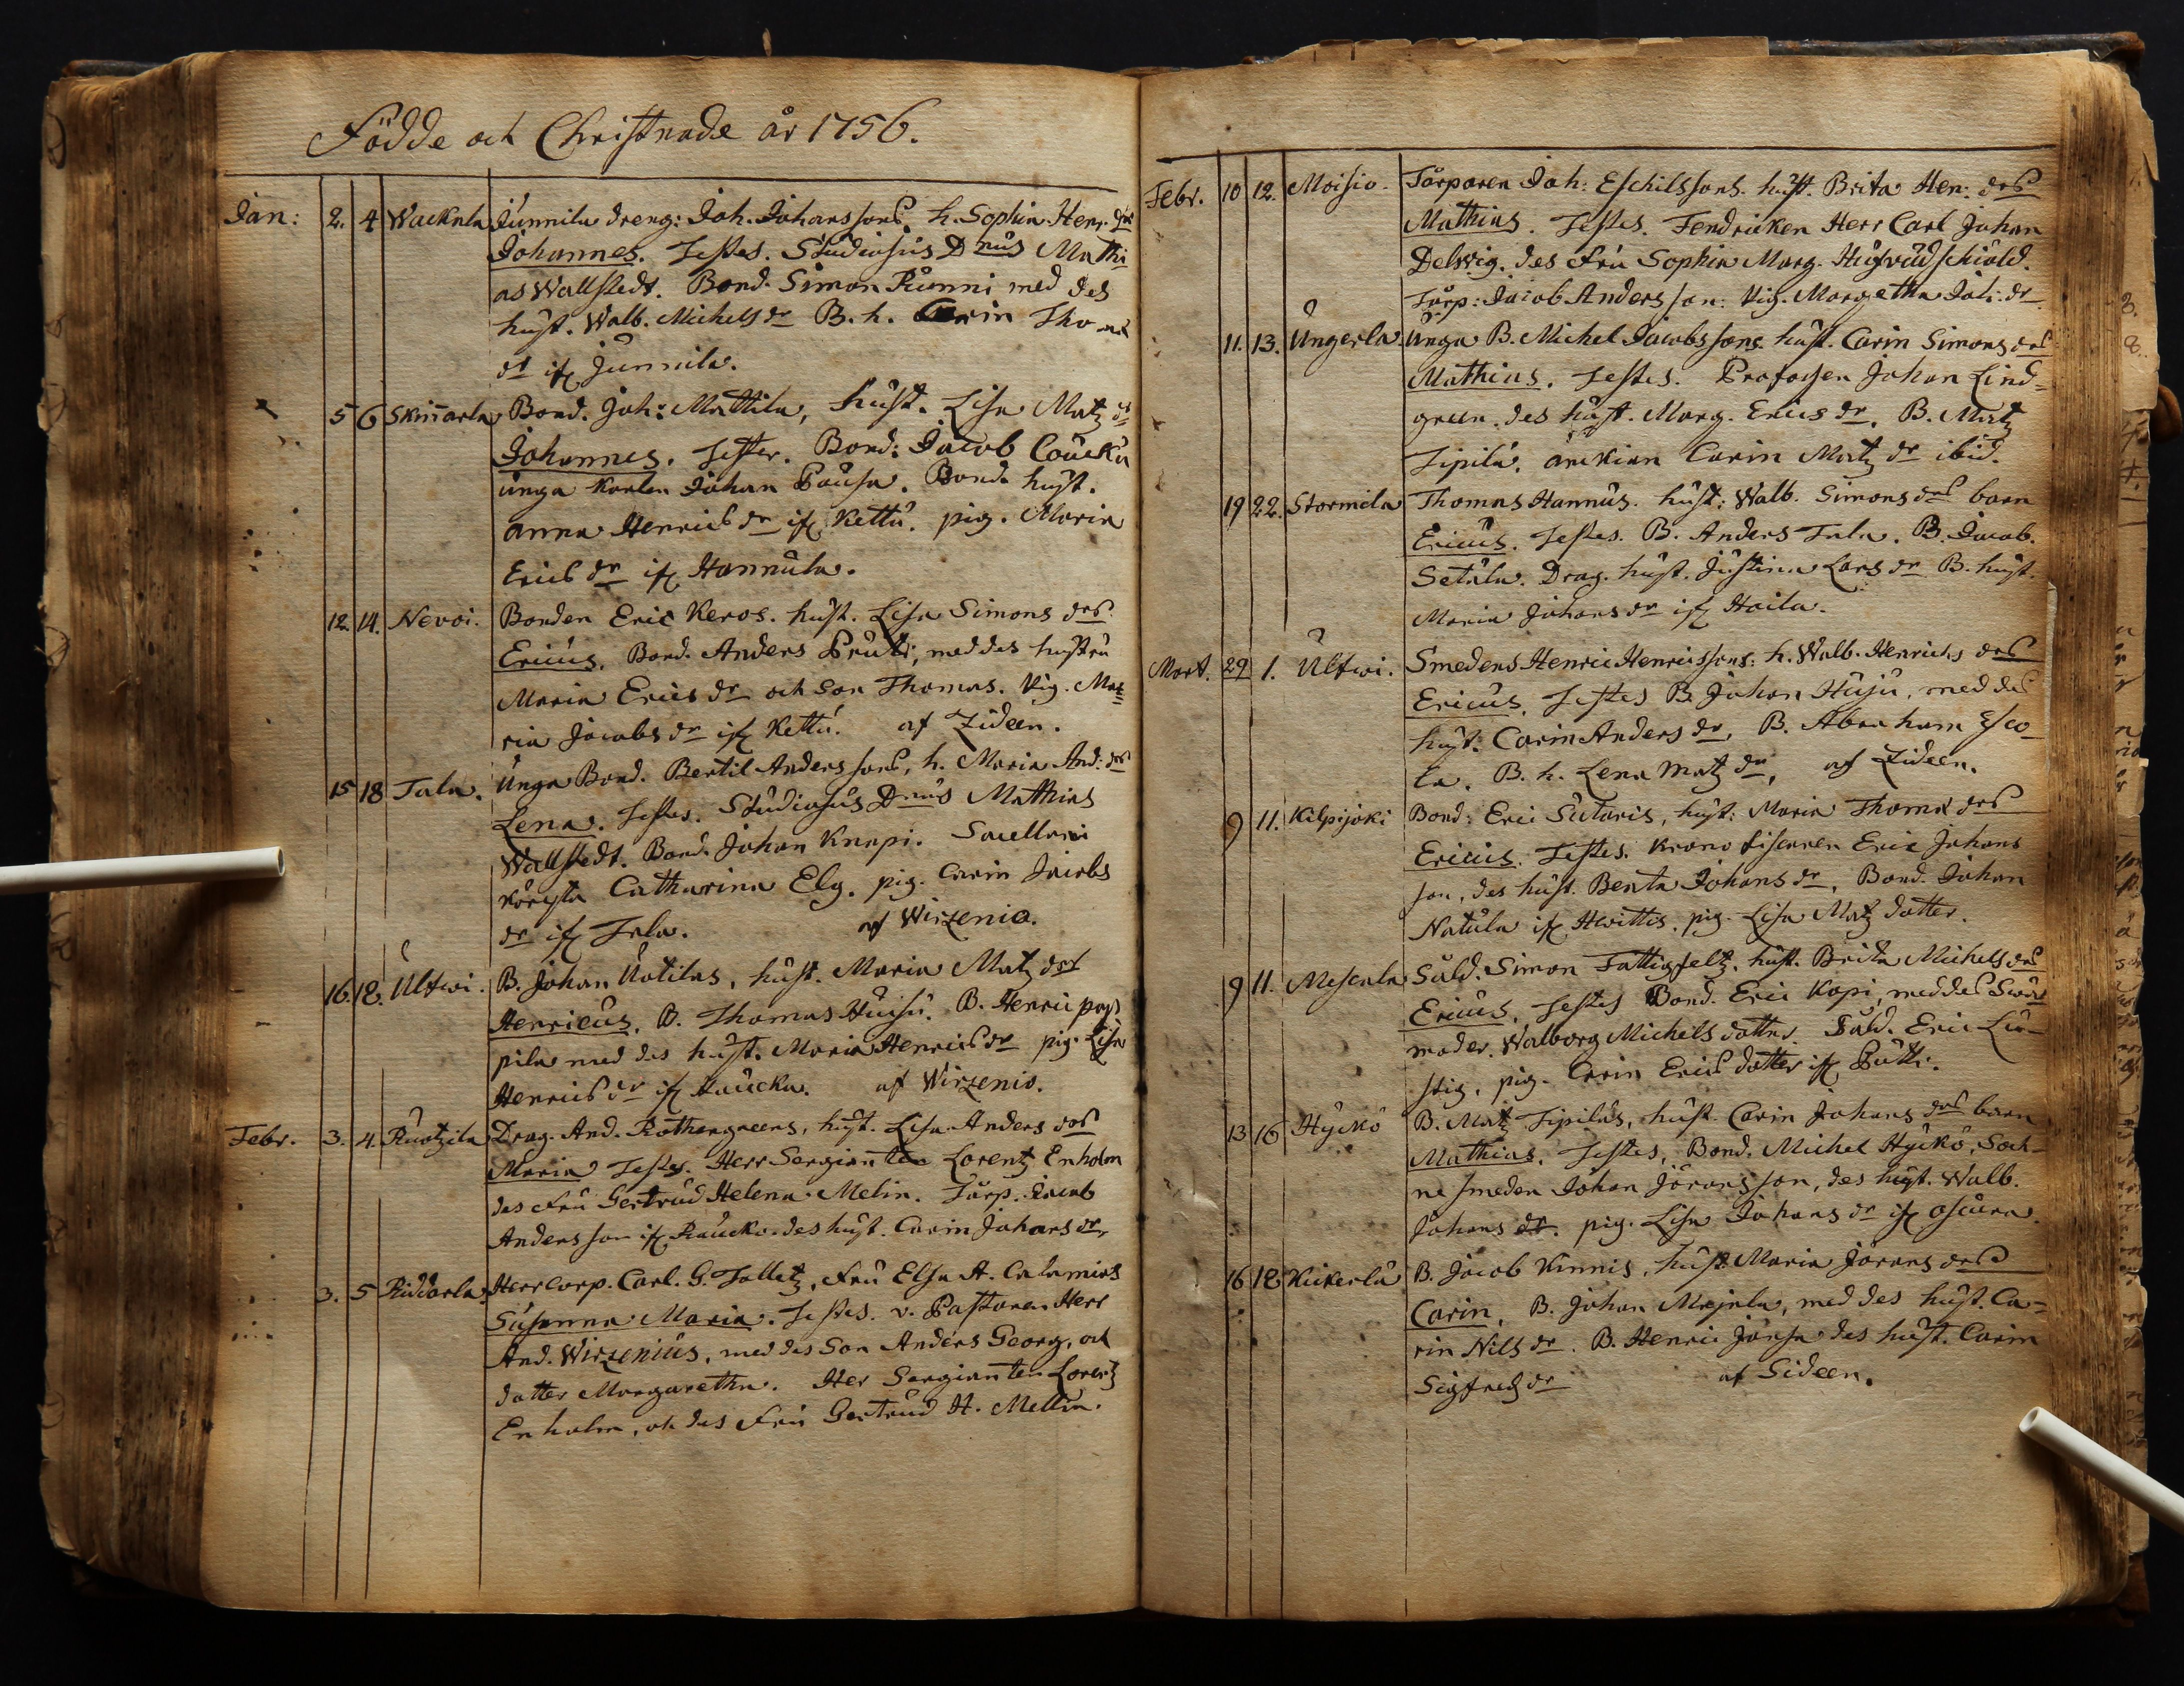 Födde och Christnade år 1756.
Jan: 2. 4 Wacknla Junnila dreng: Joh. Johanssons h. Sophia Henr. drs
Johannes. Testes. Studiosus Dnus Mathi
as Wallstedt. Bond. Simon Runni med des
hust. Walb. Michels dr B. h. Carin Thomæ
dr if Junnila.
5 6 Skinnarla Bond. Joh: Mattila, hust. Lisa Matz dr
Johannes. Tester. Bond: Jacob Coucku
unga Karlen Johan Pausa. Bond. hust.
anna Henrics dr if Kettu. pig. Maria
Erics dr if Hannula.
12. 14. Nevoi. Bonden Eric Keros. hust. Lisa Simons drs
Ericus. Bond. Anders Prutti, med des hustru
Maria Erics dr och son Thomas. Pig. Ma=
ria Jacobs dr if Kettu. af Zideen.
15 18 Tala. Unga Bond. Bertil Anderssons, h. Maria And: drs
Lena. Testes. Studiosus Dnus Mathias
Wallstedt. Bond. Johan Knapi. Sacellani
Catharina Elg. pig. Carin Jacobs
dr if Tala. af Wirzenio.
16. 18. Ultwi. B. Johan Uotilas, hust. Maria Matz drs
Henricus. B. Thomas Huisu. B. Henric pap
pila med des hust. Maria Henrics dr pig. Lisa
Henrics dr if Haucka. af Wirzenio.
Febr. 3. 4. Ruotzila Drag. And. Rothengreens, hust. Lisa Anders drs
Maria Testes. Herr Sergianten Lorentz Enholm
des Fru Gertrud Helena Melin. Torp. Jacob
Andersson if Raucko des hust. Carin Johans dr.
3. 5 Riddarla. Herr Corp. Carl. G. Tolletz, Fru Elsa A. Calamiæs
Susanna Maria. Testes. v. Pastoren Herr
And. Wirzenius, med des Son Anders Georg, och
dotter Margaretha. Her Sergianten Lorentz
Enholm, och des Fru Gertrud H. Mellin.
Febr. 10 12. Moisio. Torparen Joh: Eschilssons. hust. Brita Hen: drs
Mathias. Testes. Fendricken Herr Carl Johan
Delwig. des Fru Sophia Marg. Hufvudschiöld.
Torp: Jacob Andersson: Pig. Margetha Joh: dr
11. 13. Ungerla. Unga B. Michel Jacobssons. hust. Carin Simons drs
Mathias. Testes. Profossen Johan Lind=
green. des hust. Marg. Erics dr. B. Matz
Sipilä. änckian Carin Matz dr ibid.
19 22. Stormila Thomas Hannus. hust: Walb. Simons drs barn
Ericus. Testes. B. Anders Tala. B. Jacob.
Setälä. Drag. hust. Justina Lars dr B. hust.
Maria Johans dr if Haila.
Mart. 29 1. Ultwi. Smedens Henric Henricssons: h. Walb. Henrichs drs
Ericus. Testes B. Johan Huju, med des
hust. Carin Anders dr, B. Abraham Esco
la. B. h. Lena Matz dr, af Zideen.
9 11. Kilpijoki Bond: Eric Sutaris, hust: Maria Thomæ drs
Ericus. Testes. Krono Fiscaren Eric Johans
son, des hust. Beata Johans dr, Bond. Johan
Natula if Hwittis. pig. Lisa Matz dotter.
9 11. Mescala Såld. Simon Fattigfeltz. hust. Brita Michels drs
Ericus. Testes Bond. Eric Kopi, med des Swär
moder. Walborg Michels dotter. Såld. Eric Lu-
stig. pig. Carin Erics dotter if Putti.
13 16 Hyckö B. Matz Sipiläs, hust. Carin Johans drs barn
Mathias. Testes, Bond. Michel Hyckö, Sock-
ne smeden Johan Jöransson, des hust. Walb.
Johans dr. pig. Lisa Johans dr if
16 18 Kickerlä B. Jacob Kinnis, hust. Maria Jörans drs
Carin. B. Johan Majala, med des hust. Ca=
rin Nils dr. B. Henric Jönsa des hust. Carin
Sigfredz dr af Sideen.